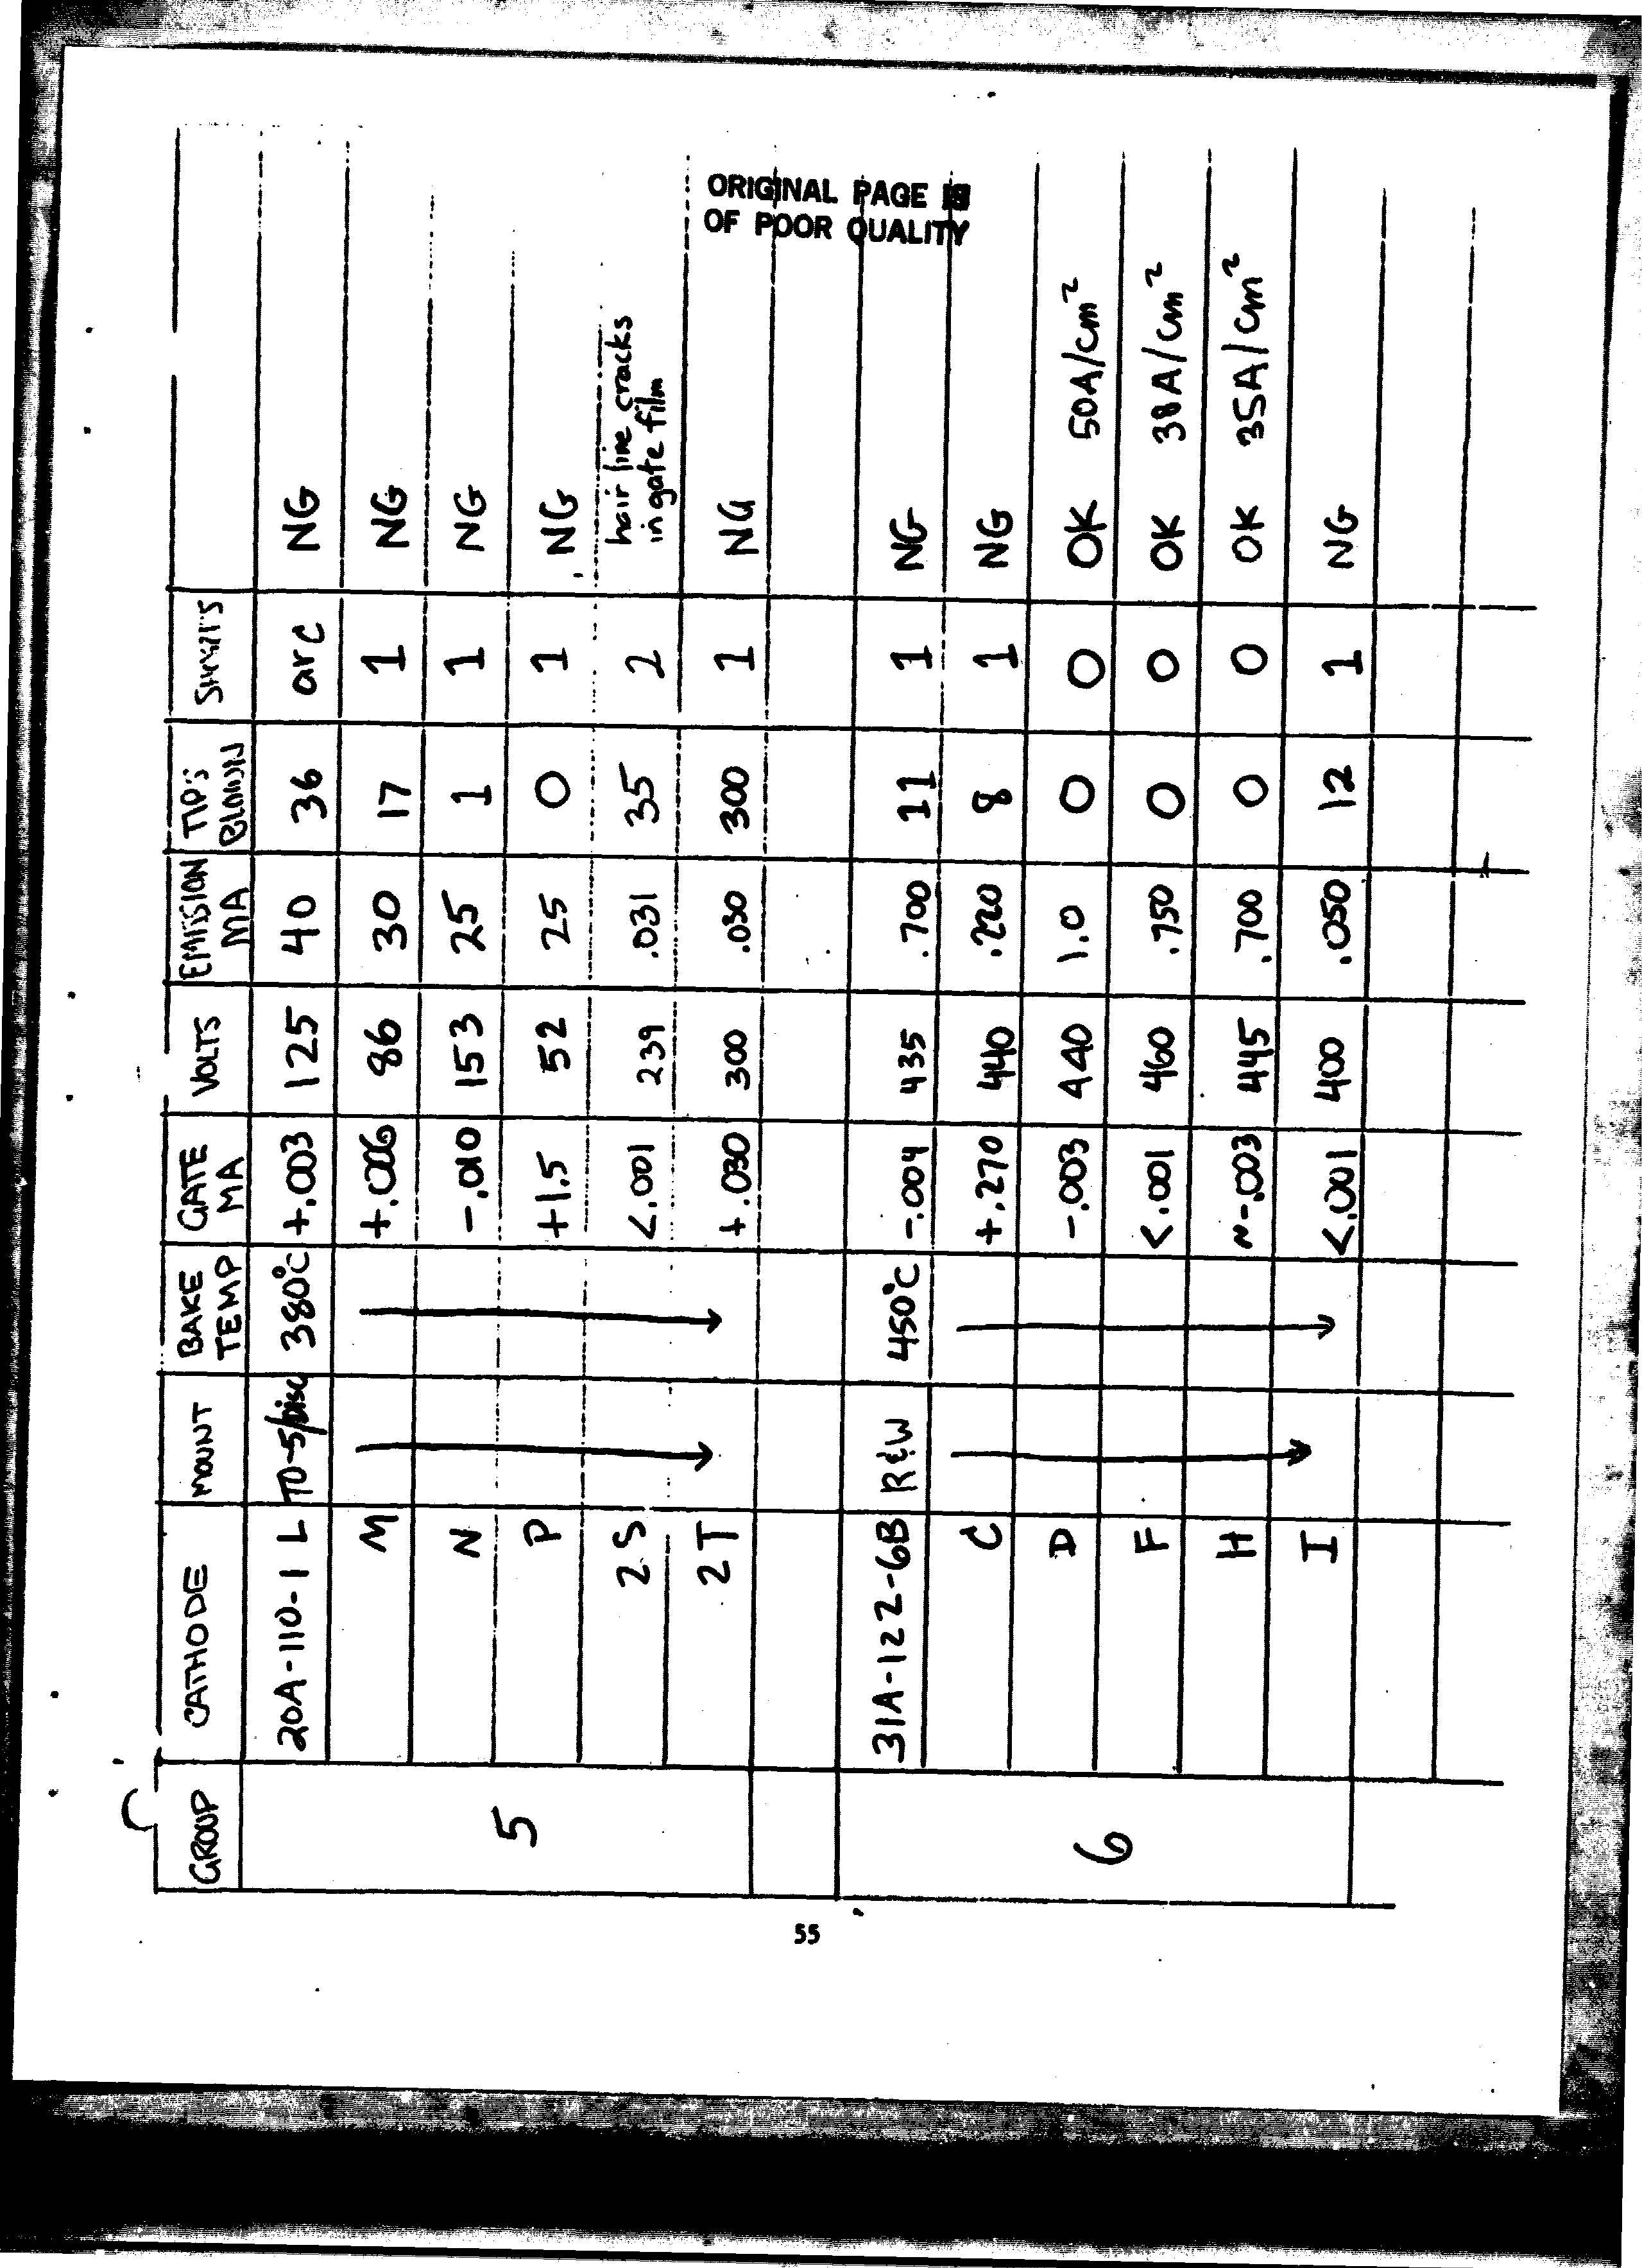 ORIGINAL PAGE IS
OF POOR QUALITY
GROUP CATHODE MOUNT BAKE TEMP GATE MA VOLTS EMISSION MA TIPS BLOWN SHORTS
5 20A-110-1 L TO-5/Disc 380°C +.003 125 40 36 arc NG
M +.006 86 30 17 1 NG
N -.010 153 25 1 1 NG
P +1.5 52 25 0 1 NG
2S <.001 239 .031 35 2 hair line cracks in gate film
2T +.030 300 .030 300 1 NG
6 31A-122-6B R&W 450°C -.004 435 .700 11 1 NG
C +.270 440 .220 8 1 NG
D -.003 440 1.0 0 0 OK 50A/cm²
F <.001 460 .750 0 0 OK 38A/cm²
H ~-.003 445 .700 0 0 OK 35A/cm²
I <.001 400 .050 12 1 NG
55